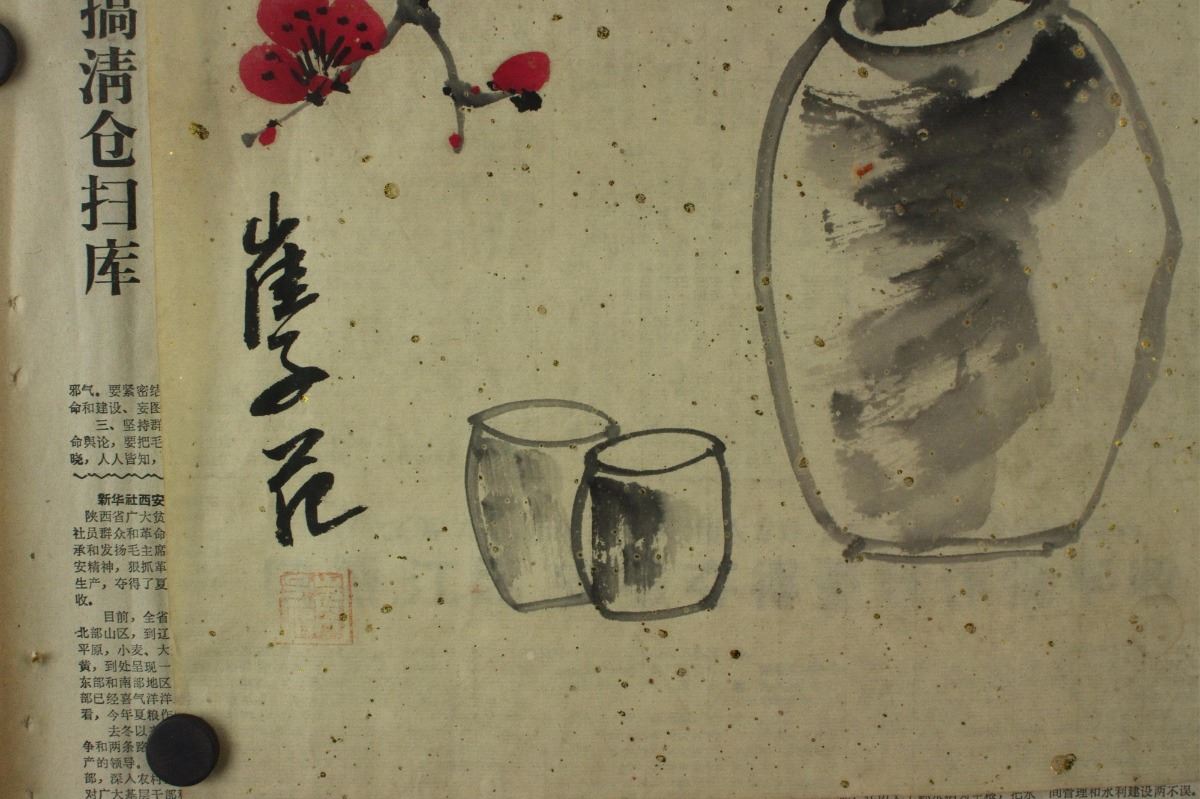 搞清仓扫库
邪气。要紧密结
命和建设、妄图
三、坚持群
命舆论，要把毛
晓，人人皆知，
新华社西安
陕西省广大贫
社员群众和革命
承和发扬毛主席
安精神，狠抓革
生产，夺得了夏
收。
目前，全省
北部山区，到辽
平原，小麦、大
黄，到处呈现一
东部和南部地区
部已经喜气洋洋
看，今年夏粮作
去冬以来
争和两条路
产的领导。
部，深入农村
对广大基层干部
崔子范
间管理和水利建设两不误。